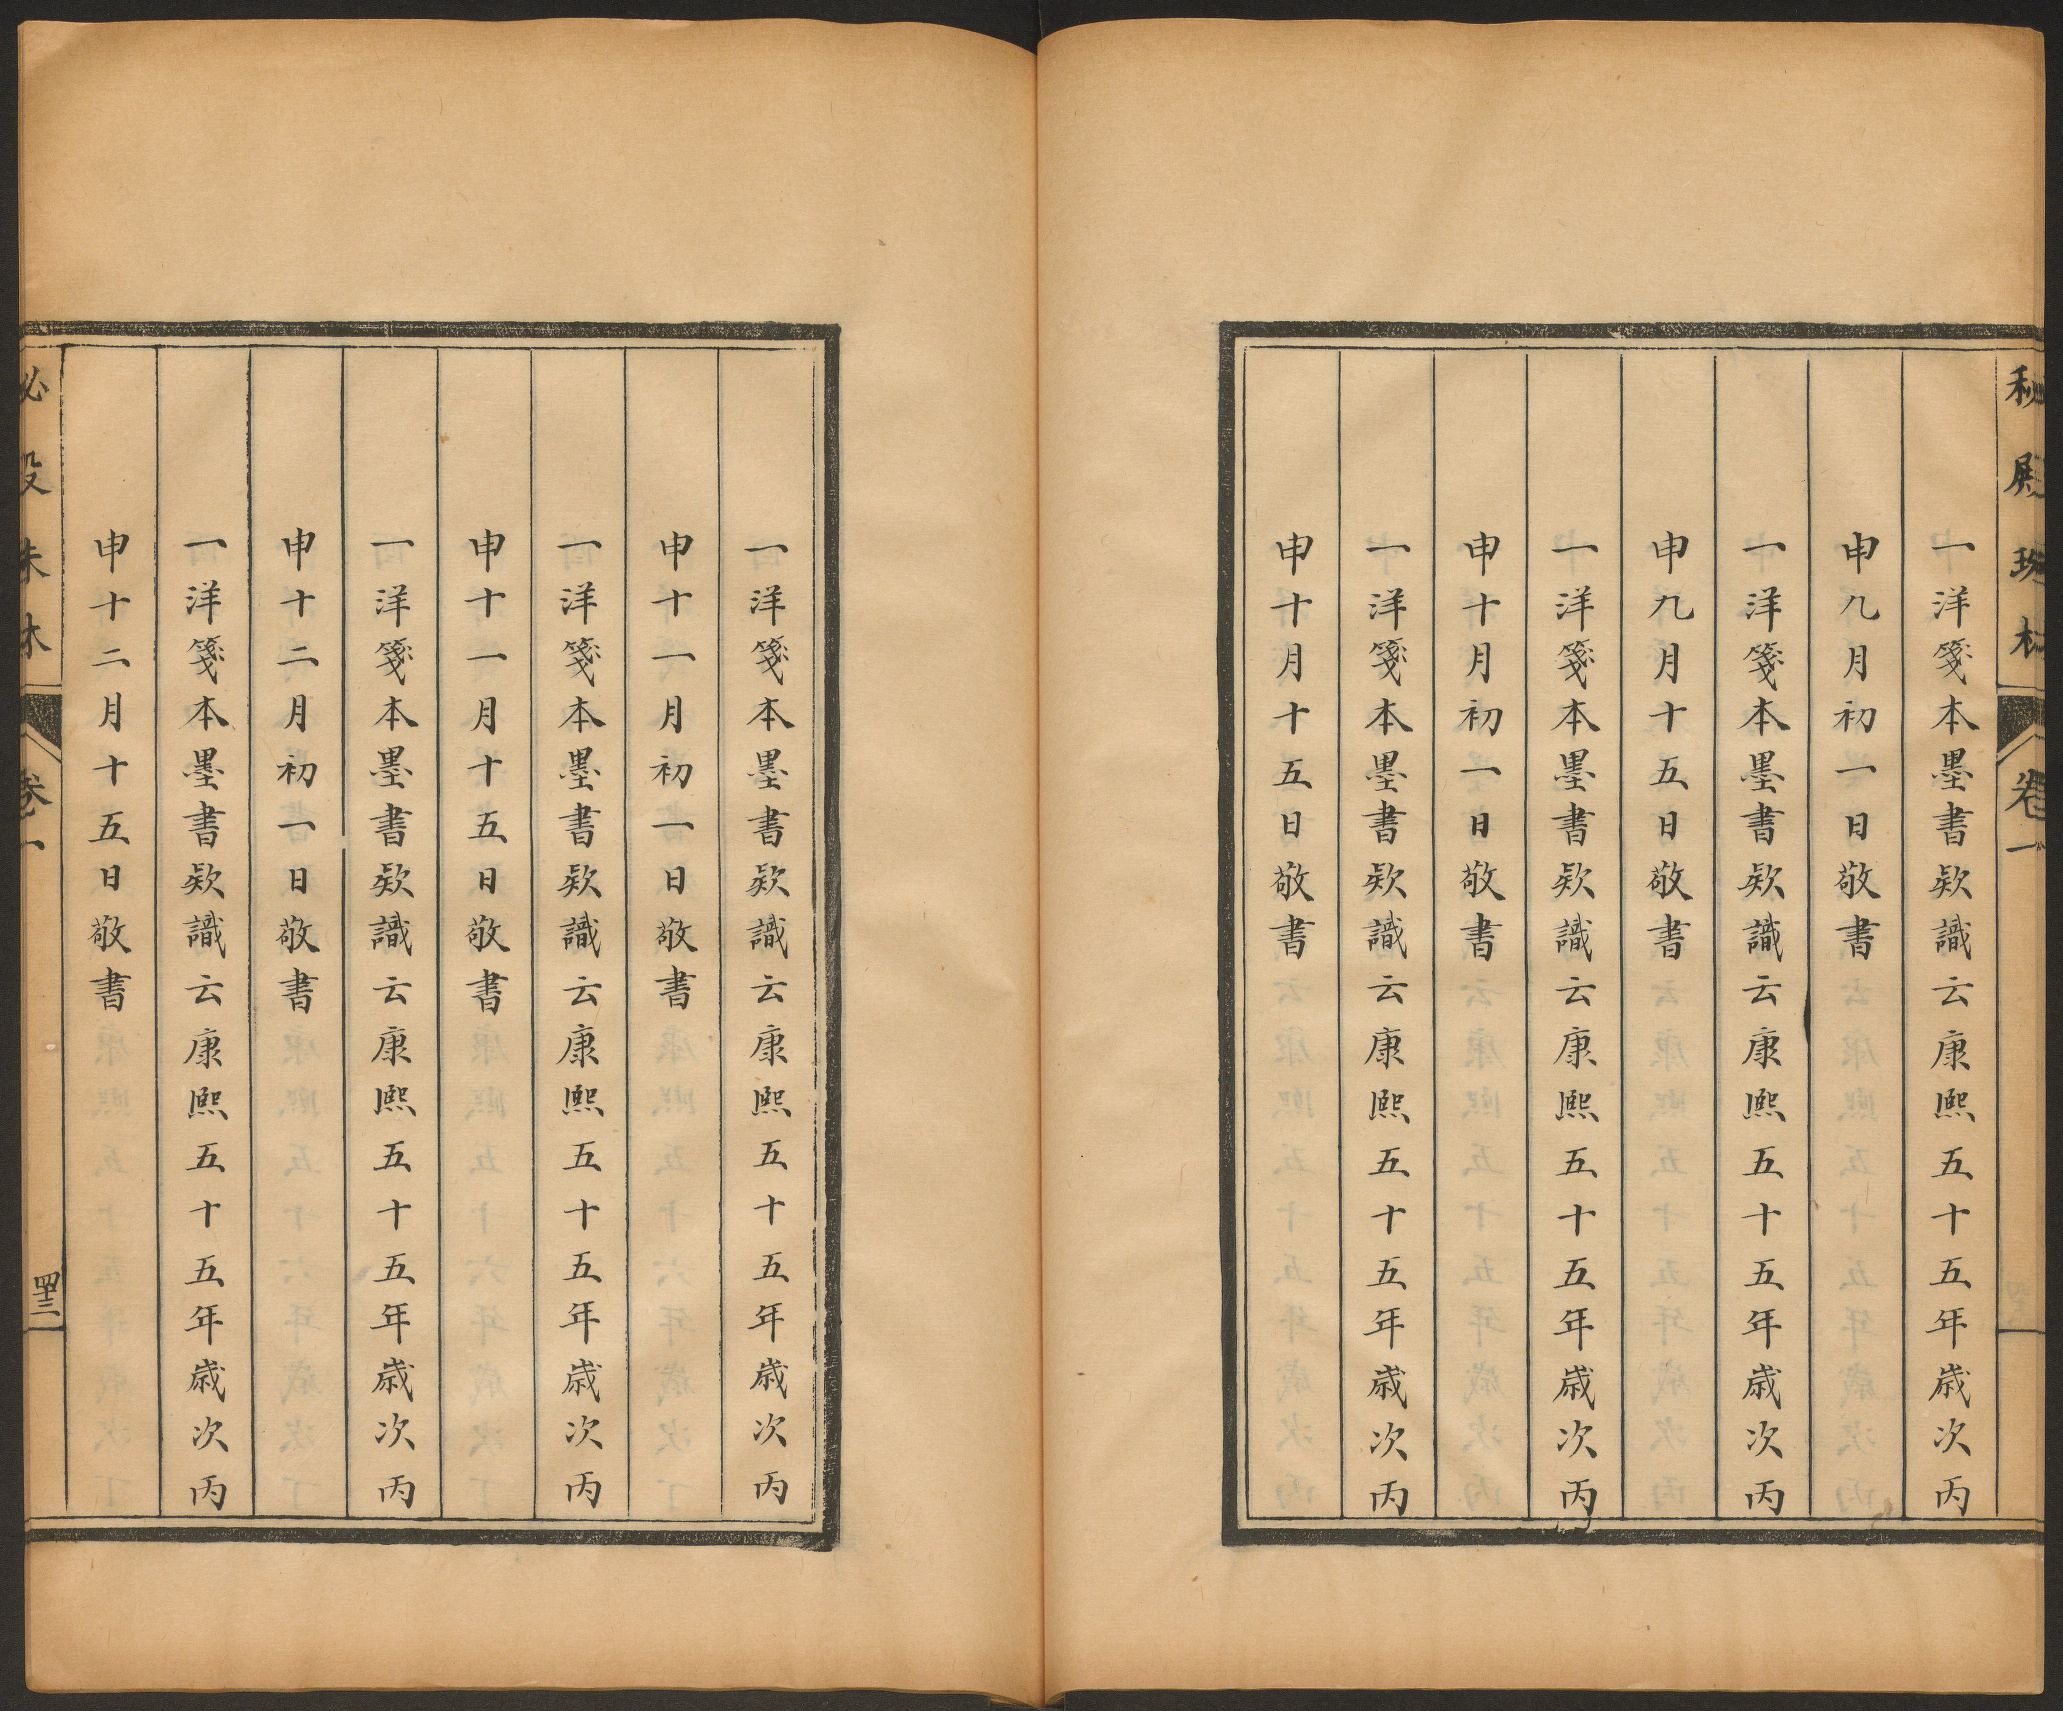 秘殿珠林 卷一
一洋箋本墨書欵識云康熙五十五年歲次丙
申九月初一日敬書
一洋箋本墨書欵識云康熙五十五年歲次丙
申九月十五日敬書
一洋箋本墨書欵識云康熙五十五年歲次丙
申十月初一日敬書
一洋箋本墨書欵識云康熙五十五年歲次丙
申十月十五日敬書
一洋箋本墨書欵識云康熙五十五年歲次丙
申十一月初一日敬書
一洋箋本墨書欵識云康熙五十五年歲次丙
申十一月十五日敬書
一洋箋本墨書欵識云康熙五十五年歲次丙
申十二月初一日敬書
一洋箋本墨書欵識云康熙五十五年歲次丙
申十二月十五日敬書
秘殿珠林 卷一 四十三